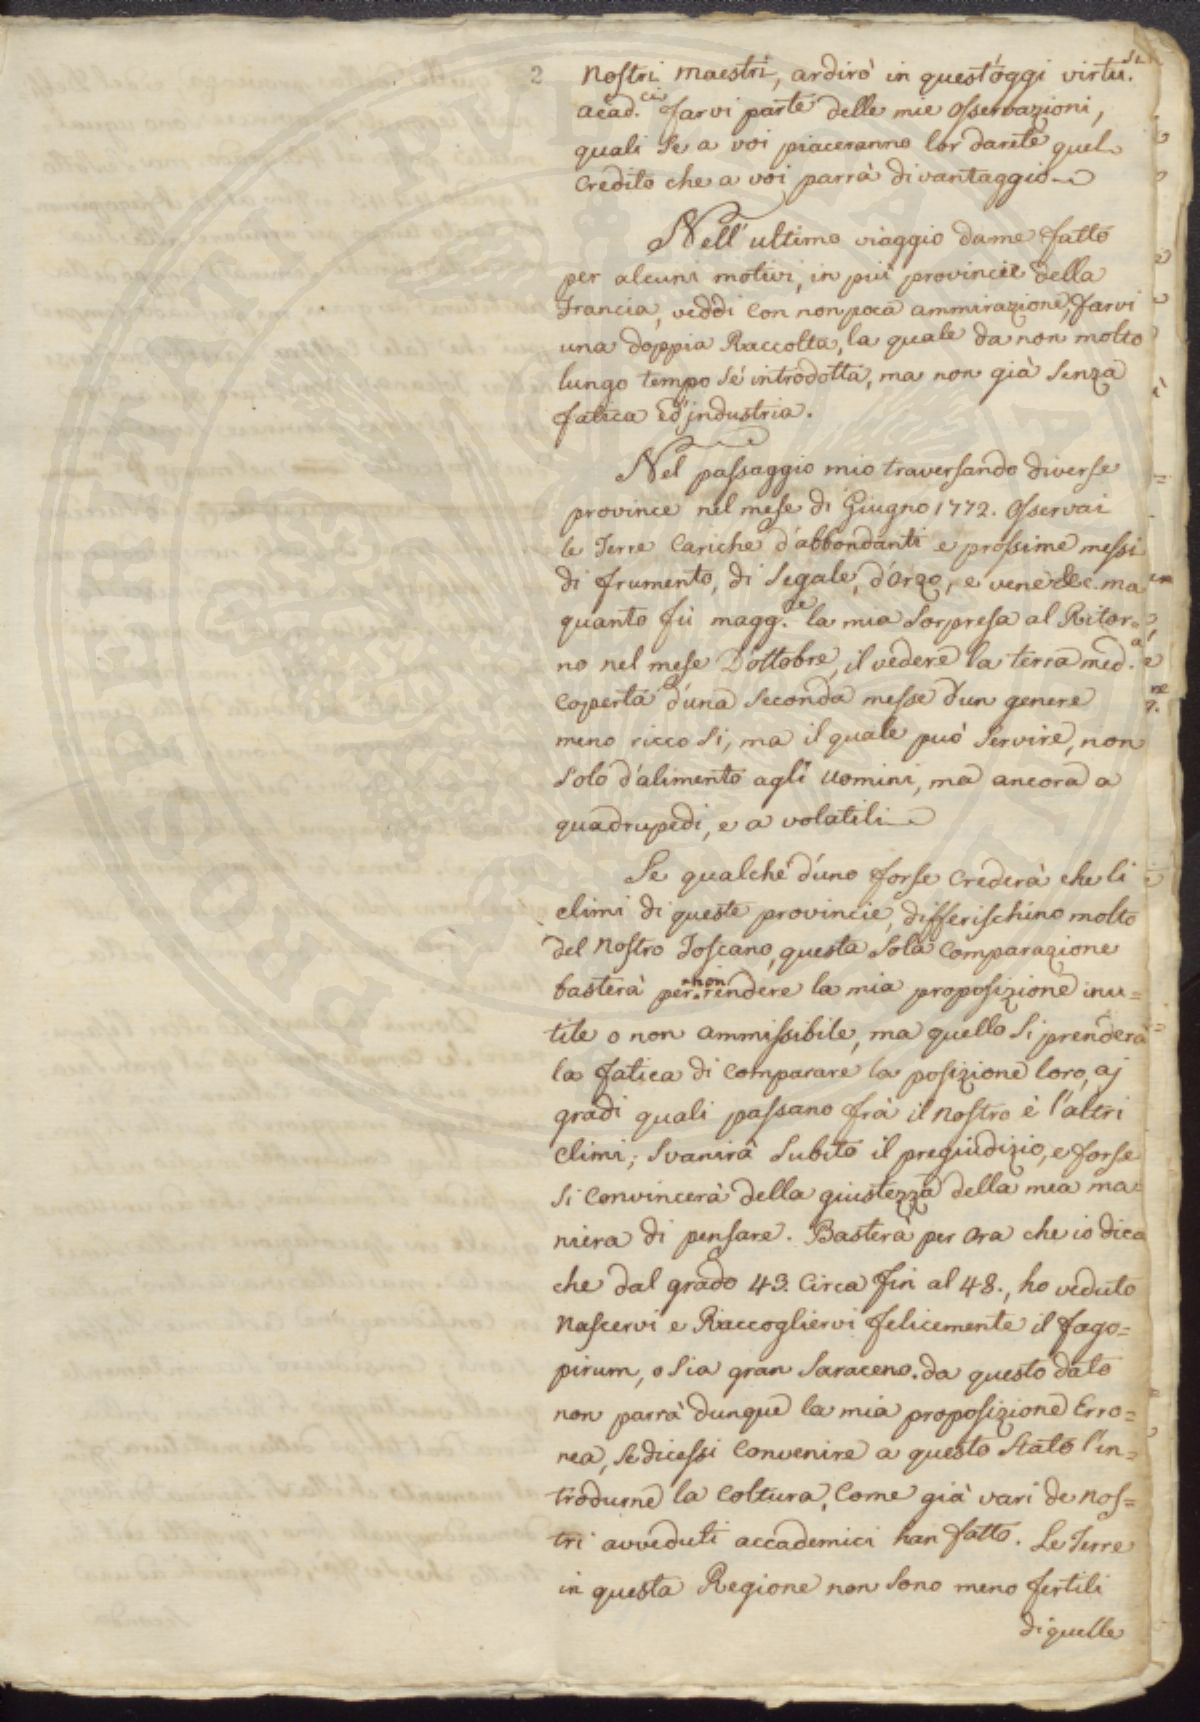 2
nostri maestri, ardirò in quest'oggi virtu.si
acad.ci farvi parte delle mie osservazioni,
quali se a voi piaceranno lor darete quel
credito che a voi parrà di vantaggio
Nell'ultimo viaggio da me fatto
per alcuni motivi, in più provincie della
Francia, veddi con non poca ammirazione, farvi
una doppia Raccolta, la quale da non molto
lungo tempo s'è introdotta, ma non già senza
fatica ed industria.
Nel passaggio mio traversando diverse
province nel mese di Giugno 1772. osservai
le Terre cariche d'abbondanti e prossime messi
di frumento, di segale, d'orzo, e vene &c. ma
quanto fù magg.re la mia sorpresa al Ritor=
no nel mese D'ottobre, il vedere la terra med.a
coperta d'una seconda messe d'un genere
meno ricco si, ma il quale può servire, non
solo d'alimento agli uomini, ma ancora a
quadrupedi, e a volatili
Se qualched'uno forse crederà che li
climi di queste provincie, differischino molto
del nostro Toscano, questa sola comparazione
basterà per non rendere la mia proposizione inu=
tile o non ammissibile, ma quello si prenderà
la fatica di comparare la posizione loro, aj
gradi quali passano frà il nostro è l'altri
climi; svanirà subito il pregiudizio, e forse
si convincerà della giustezza della mea ma
niera di pensare. Basterà per ora che io dica
che dal grado 43. circa fin al 48., ho veduto
nascervi e Raccogliervi felicemente il fago=
pirum, o sia gran saraceno. da questo dato
non parrà dunque la mia proposizione Erro=
nea, se dicessi convenire a questo stato l'in=
trodurne la coltura, come già vari de nos=
tri avveduti accademici han fatto. Le Terre
in questa Regione non sono meno fertili
di quelle